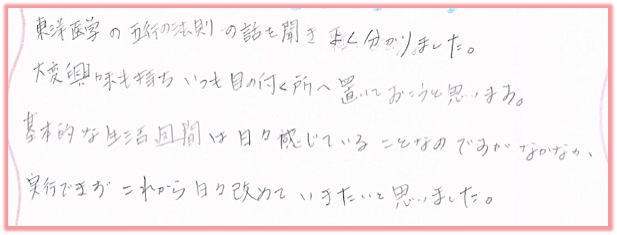 東洋医学の五行の法則の話を聞きよく分かりました。
大変興味も持ちいつも目の付く所へ置いておこうと思います。
基本的な生活習慣は日々感じていることなのですがなかなか、
実行できず これから日々改めていきたいと思いました。